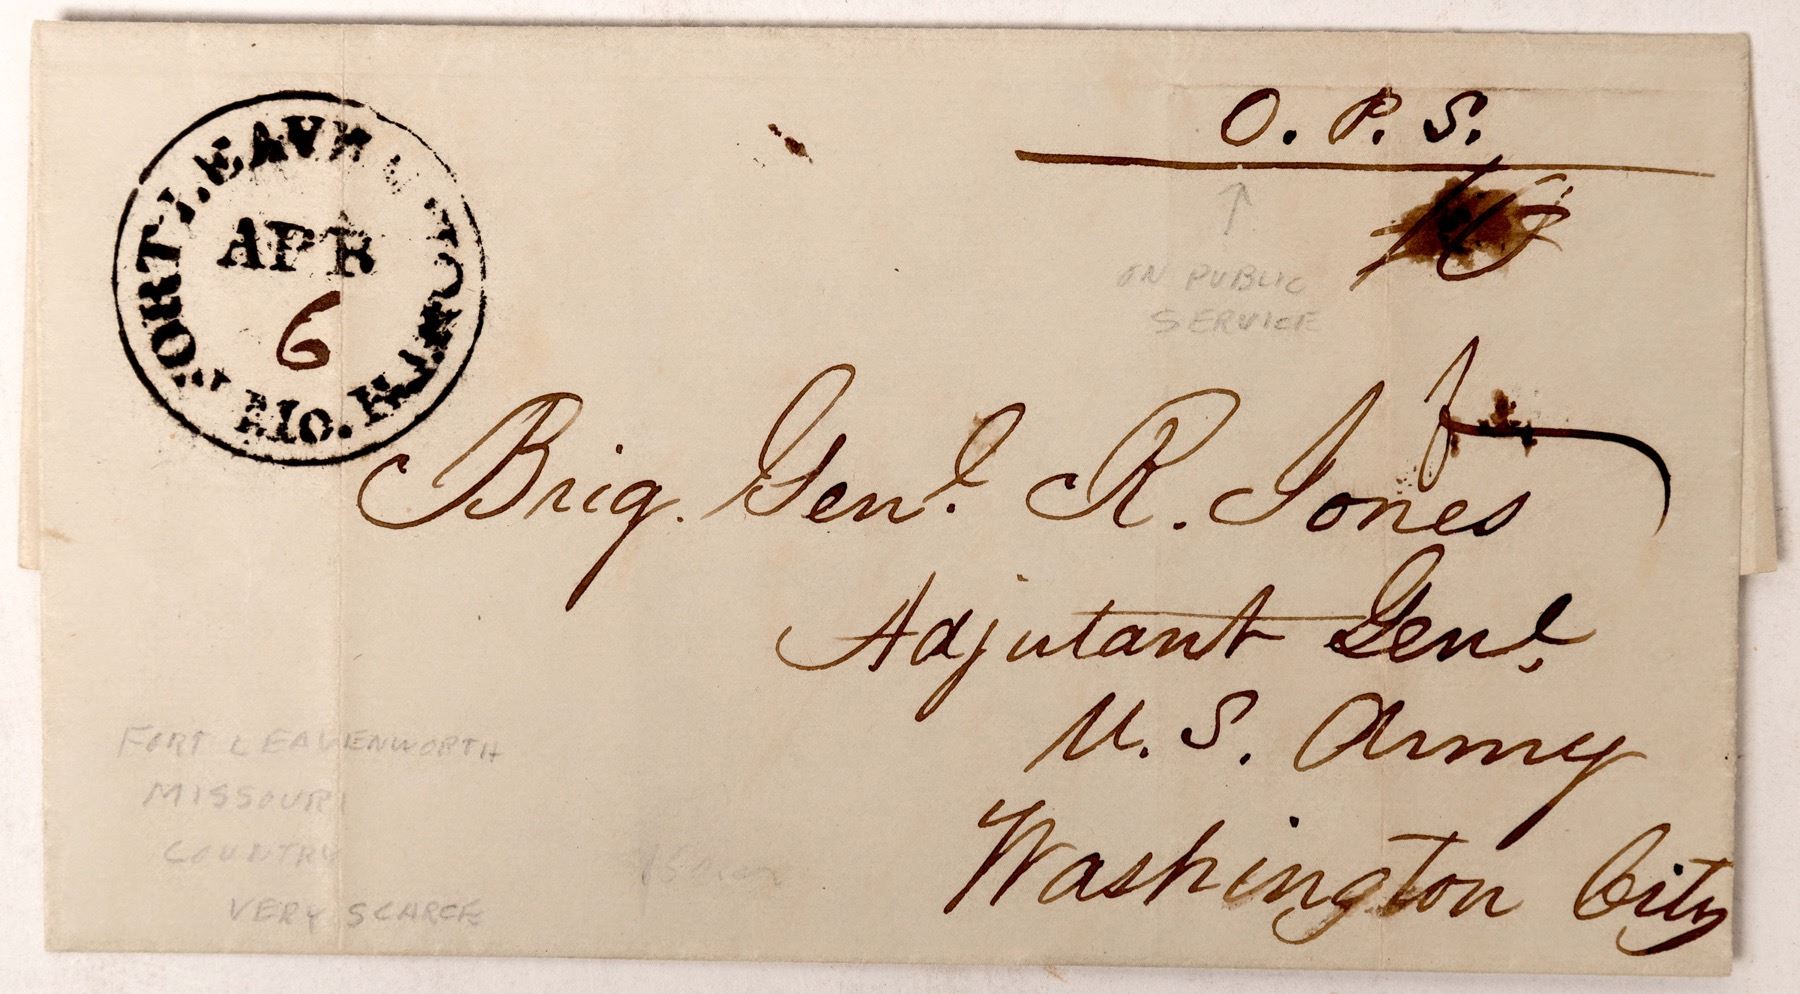 O. P. S.
FORT LEAVENWORTH
MO.
APR
6
ON PUBLIC
SERVICE
Brig. Genl. R. Jones
Adjutant Genl.
U. S. Army
Washington City
FORT LEAVENWORTH
MISSOURI
COUNTRY
VERY SCARCE